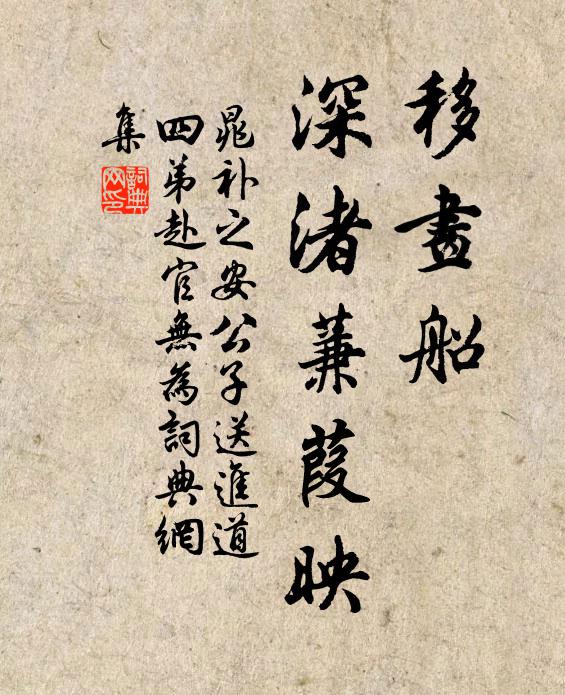 移畫船
深渚蒹葭映
晁補之安公子送進道
四弟赴官無為詞典網
集
詞典
网印